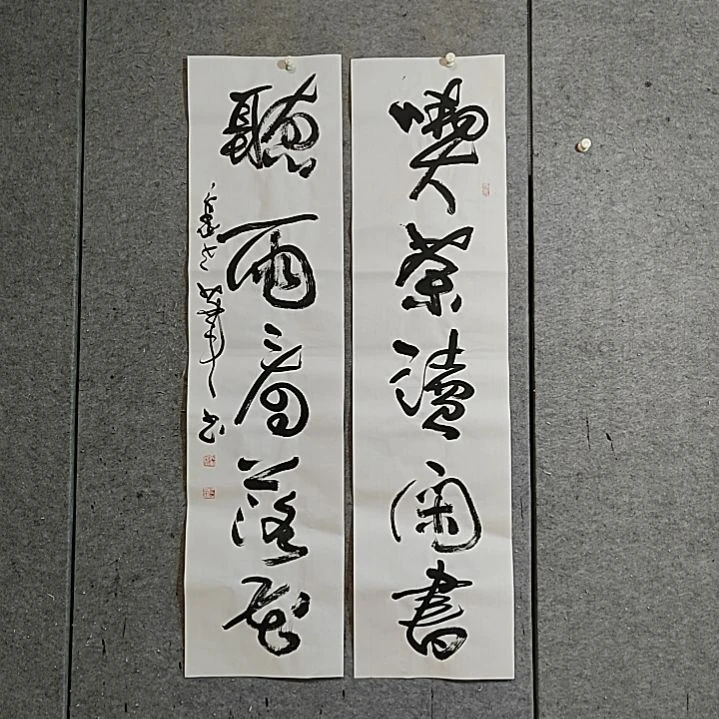 喫茶讀闲書
聽雨看落花